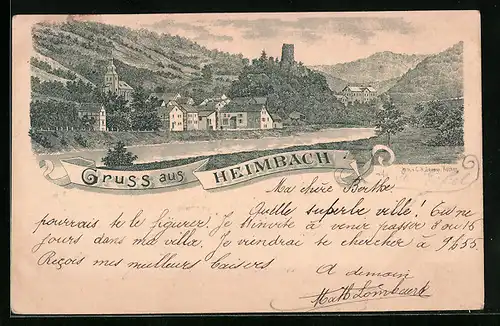 Gruss aus HEIMBACH
Ma chère Berthe
Quelle superbe ville! Tu ne
pourrais te le figurer! Je t'invite à venir passer 8 ou 15
jours dans ma villa. Je viendrai te chercher à 9 h 55.
Reçois mes meilleurs baisers
A demain